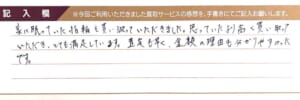 記入欄
※今回ご利用いただきました買取サービスの感想を、手書きにてご記入お願いします。
家に眠っていた指輪を買い取っていただきました。思っていたより高く買い取って
いただき、とても満足しています。査定も早く、金額の理由も分かりやすかった
です。